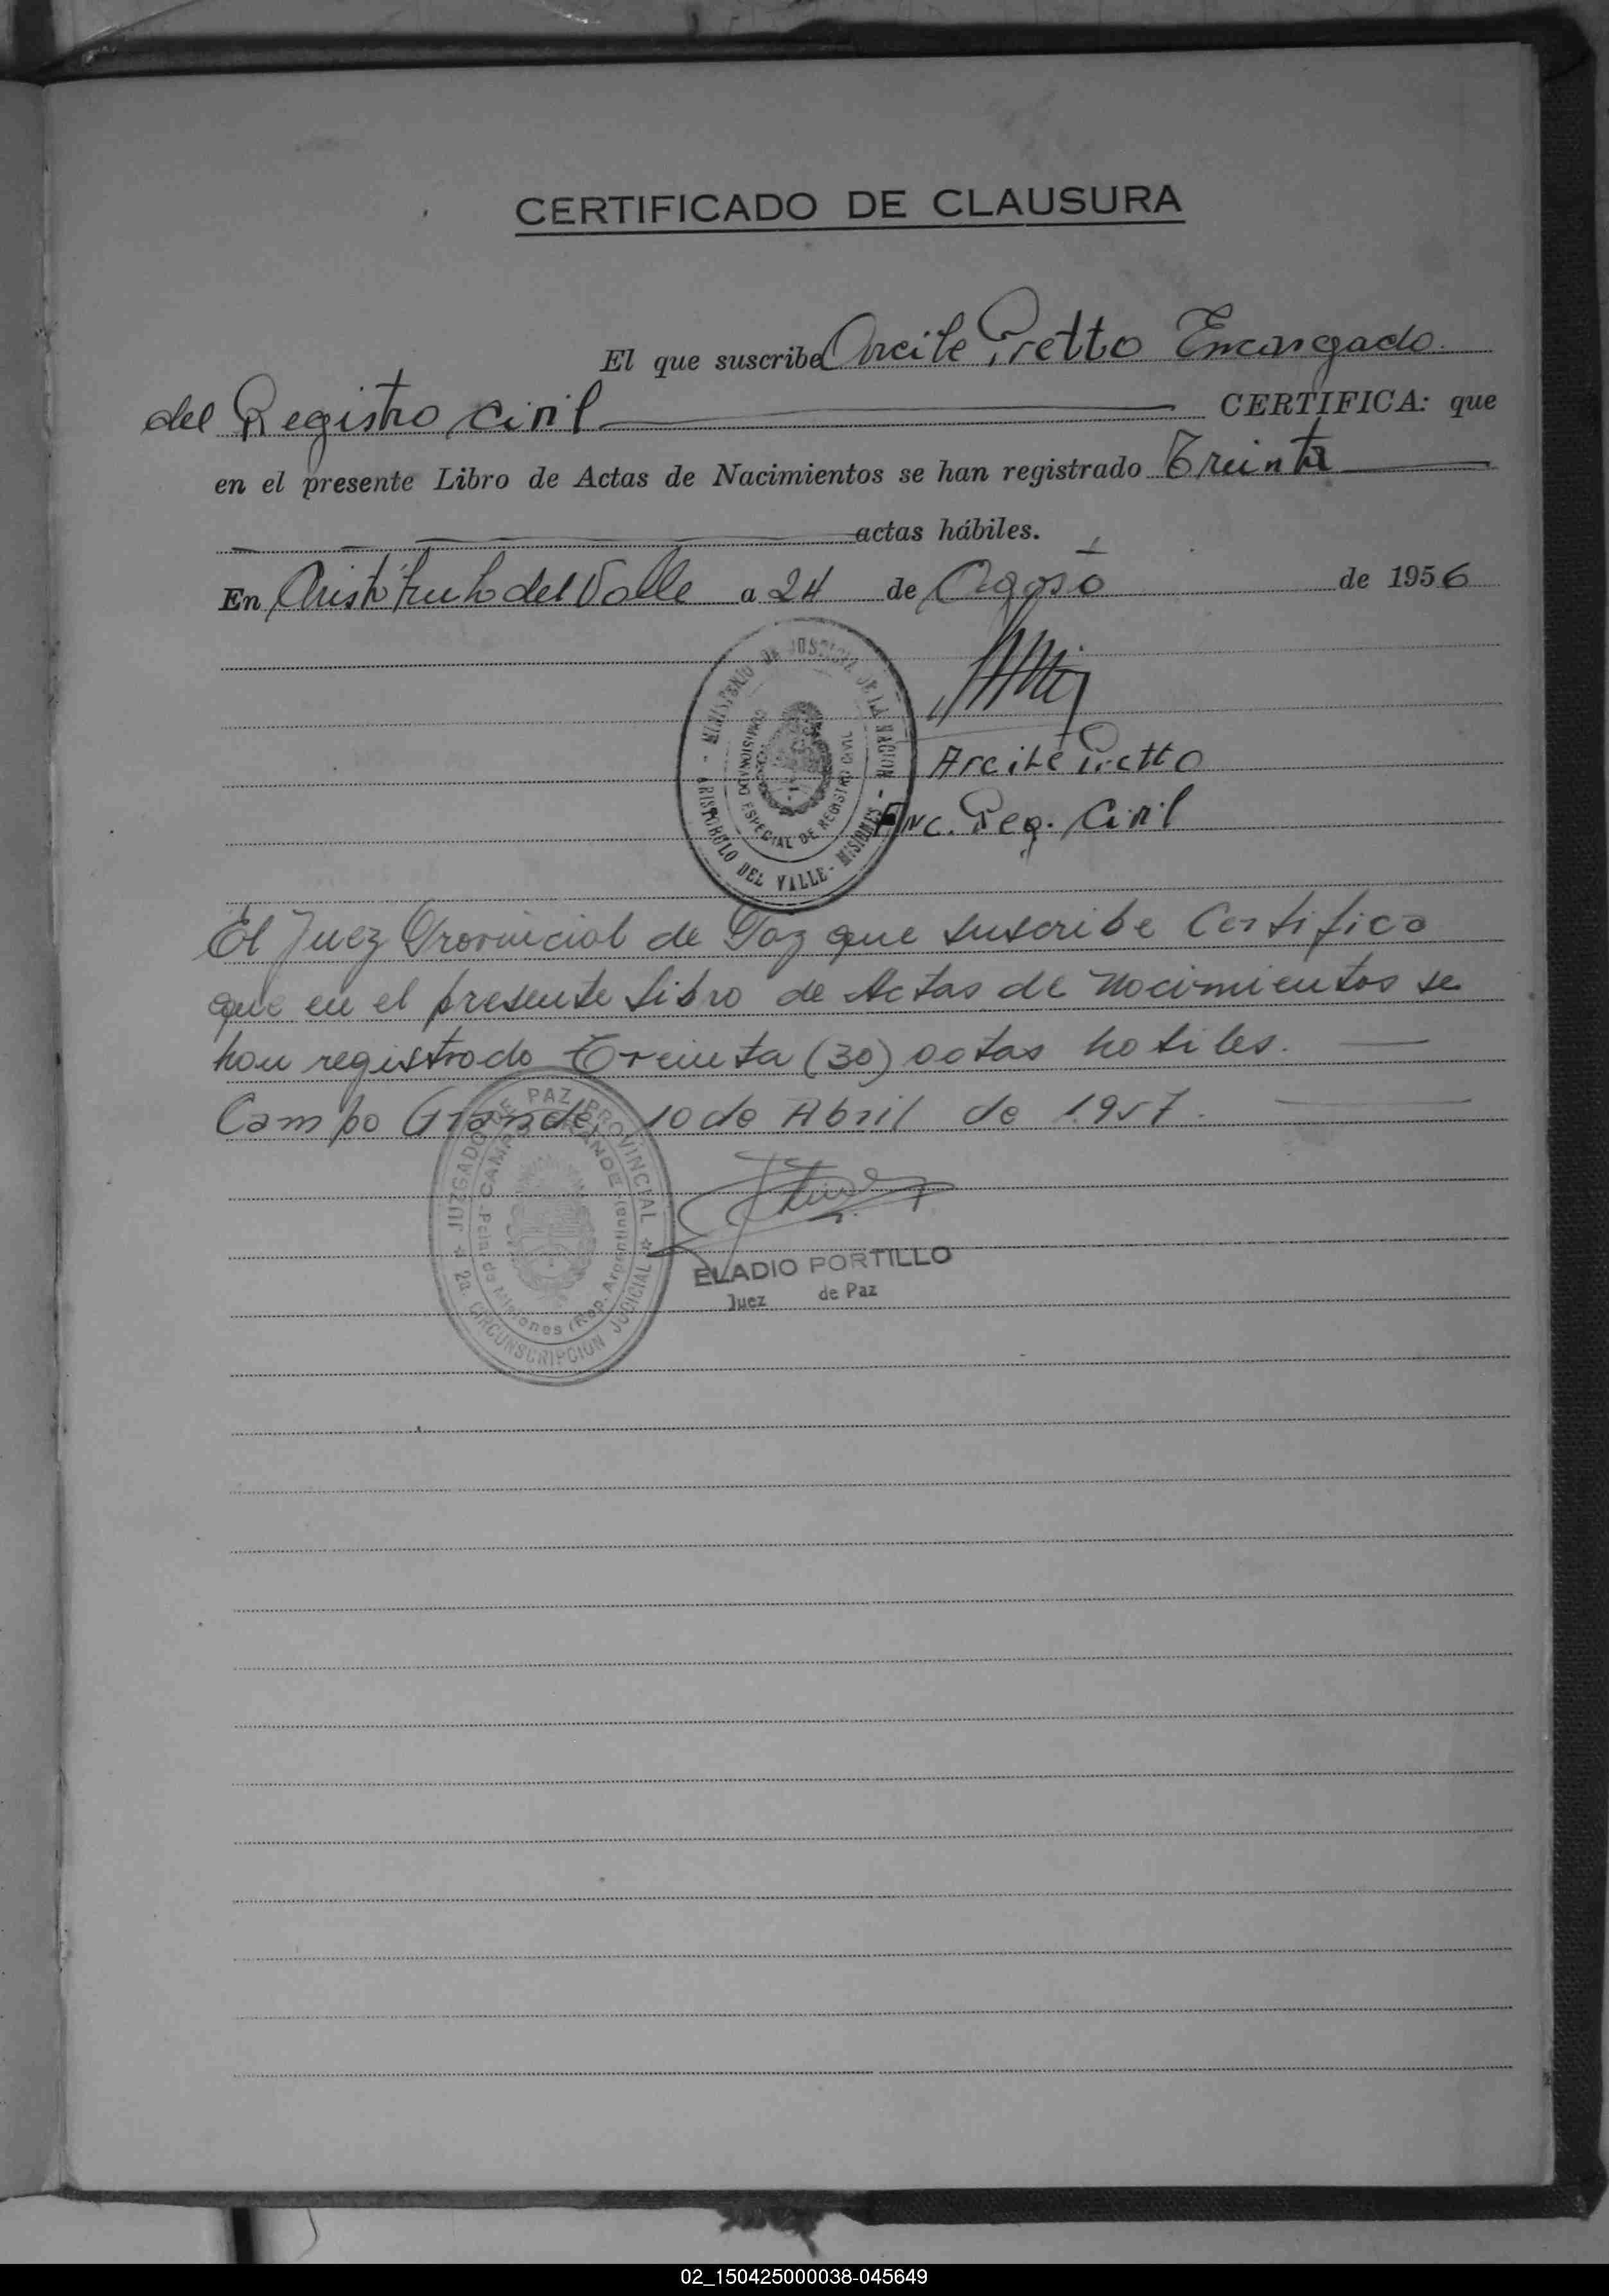 CERTIFICADO DE CLAUSURA
El que suscribe Arcile Pretto Encargado
del Registro Civil CERTIFICA: que
en el presente Libro de Actas de Nacimientos se han registrado Treinta
actas hábiles.
En Aristóbulo del Valle a 24 de Agosto de 1956
- MINISTERIO DE JUSTICIA DE LA NACION -
COMISIONADO ESPECIAL DE REGISTRO CIVIL
ARISTOBULO DEL VALLE - MISIONES
Arcile Pretto
Enc. Reg. Civil
El Juez Provincial de Paz que suscribe Certifica
que en el presente Libro de Actas de Nacimientos se
han registrado Treinta (30) actas habiles.
Campo Grande, 10 de Abril de 1957.
JUZGADO DE PAZ PROVINCIAL
CAMPO GRANDE
Pcia. de Misiones (Rep. Argentina)
2a. CIRCUNSCRIPCION JUDICIAL
ELADIO PORTILLO
Juez de Paz
02_150425000038-045649